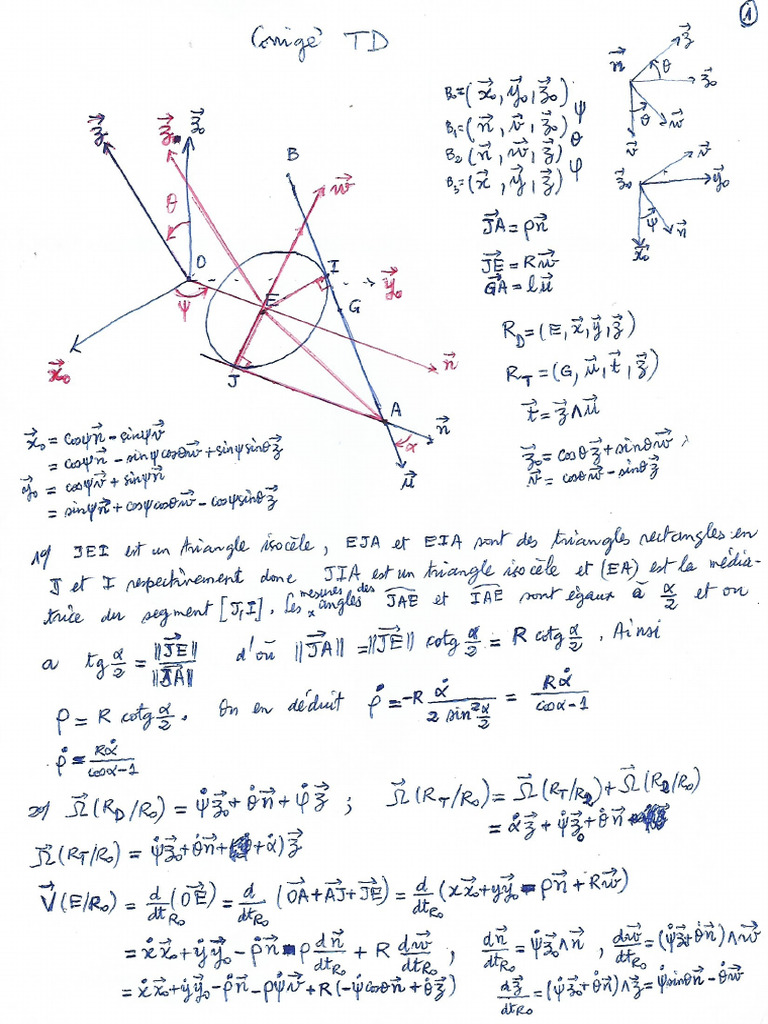 1
Corrigé TD
B₀=(x⃗₀, y⃗₀, z⃗₀) ψ
B₁=(n⃗, v⃗, z⃗₀) θ
B₂(n⃗, w⃗, z⃗) φ
B₃=(x⃗, y⃗, z⃗)
n⃗ z⃗ θ z⃗₀ w⃗ θ v⃗
z⃗₀ v⃗ y⃗₀ ψ n⃗ x⃗₀
JA⃗ = ρn⃗
JE⃗ = Rw⃗
GA⃗ = lu⃗
R_D=(E, x⃗, y⃗, z⃗)
R_T=(G, u⃗, t⃗, z⃗)
t⃗ = z⃗∧u⃗
z⃗₀ = cosθ z⃗ + sinθ w⃗
v⃗ = cosθ w⃗ - sinθ z⃗
z⃗ z⃗ z⃗₀ B w⃗
θ O ψ E I y⃗₀ G
x⃗₀ J n⃗ A n⃗ α u⃗
x⃗₀ = cosψn⃗ - sinψv⃗
= cosψn⃗ - sinψcosθw⃗ + sinψsinθz⃗
y⃗₀ = cosψv⃗ + sinψn⃗
= sinψn⃗ + cosψcosθw⃗ - cosψsinθz⃗
1°/ JEI est un triangle isocèle, EJA et EIA sont des triangles rectangles en
J et I respectivement donc JIA est un triangle isocèle et (EA) est la média-
trice du segment [J,I]. Les mesures des angles JAE et IAE sont égaux à α/2 et on
a tg α/2 = ||JE⃗||/||JA⃗|| d'où ||JA⃗|| = ||JE⃗|| cotg α/2 = R cotg α/2. Ainsi
ρ = R cotg α/2. On en déduit ρ̇ = -R α̇/(2 sin² α/2) = Rα̇/(cosα-1)
ρ̇ = Rα̇/(cosα-1)
2°/ Ω⃗(R_D/R₀) = ψ̇z⃗₀ + θ̇n⃗ + φ̇z⃗ ; Ω⃗(R_T/R₀) = Ω⃗(R_T/R₂) + Ω⃗(R₂/R₀)
= α̇z⃗ + ψ̇z⃗₀ + θ̇n⃗
Ω⃗(R_T/R₀) = ψ̇z⃗₀ + θ̇n⃗ + α̇)z⃗
V⃗(E/R₀) = d/dt_R₀ (OE⃗) = d/dt_R₀ (OA⃗ + AJ⃗ + JE⃗) = d/dt_R₀ (xx⃗₀ + yy⃗₀ - ρn⃗ + Rw⃗)
= ẋx⃗₀ + ẏy⃗₀ - ρ̇n⃗ - ρ dn⃗/dt_R₀ + R dw⃗/dt_R₀ , dn⃗/dt_R₀ = ψ̇z⃗₀∧n⃗ , dw⃗/dt_R₀ = (ψ̇z⃗₀ + θ̇n⃗)∧w⃗
= ẋx⃗₀ + ẏy⃗₀ - ρ̇n⃗ - ρψ̇v⃗ + R(-ψ̇cosθn⃗ + θ̇z⃗) dz⃗/dt_R₀ = (ψ̇z⃗₀ + θ̇n⃗)∧z⃗ = ψ̇sinθn⃗ - θ̇w⃗